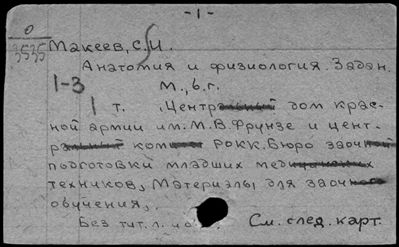 -1-
0
3535
Макеев, С. И.
Анатомия и физиология. Задан.
1-3
М., б. г.
1 т. (Центральный дом крас-
ной армии им. М. В. Фрунзе и цент-
ральный комитет РОКК. Бюро заочной
подготовки младших медицинских
техников, Материалы для заочного
обучения,
Без тит. л. и
См. след. карт.